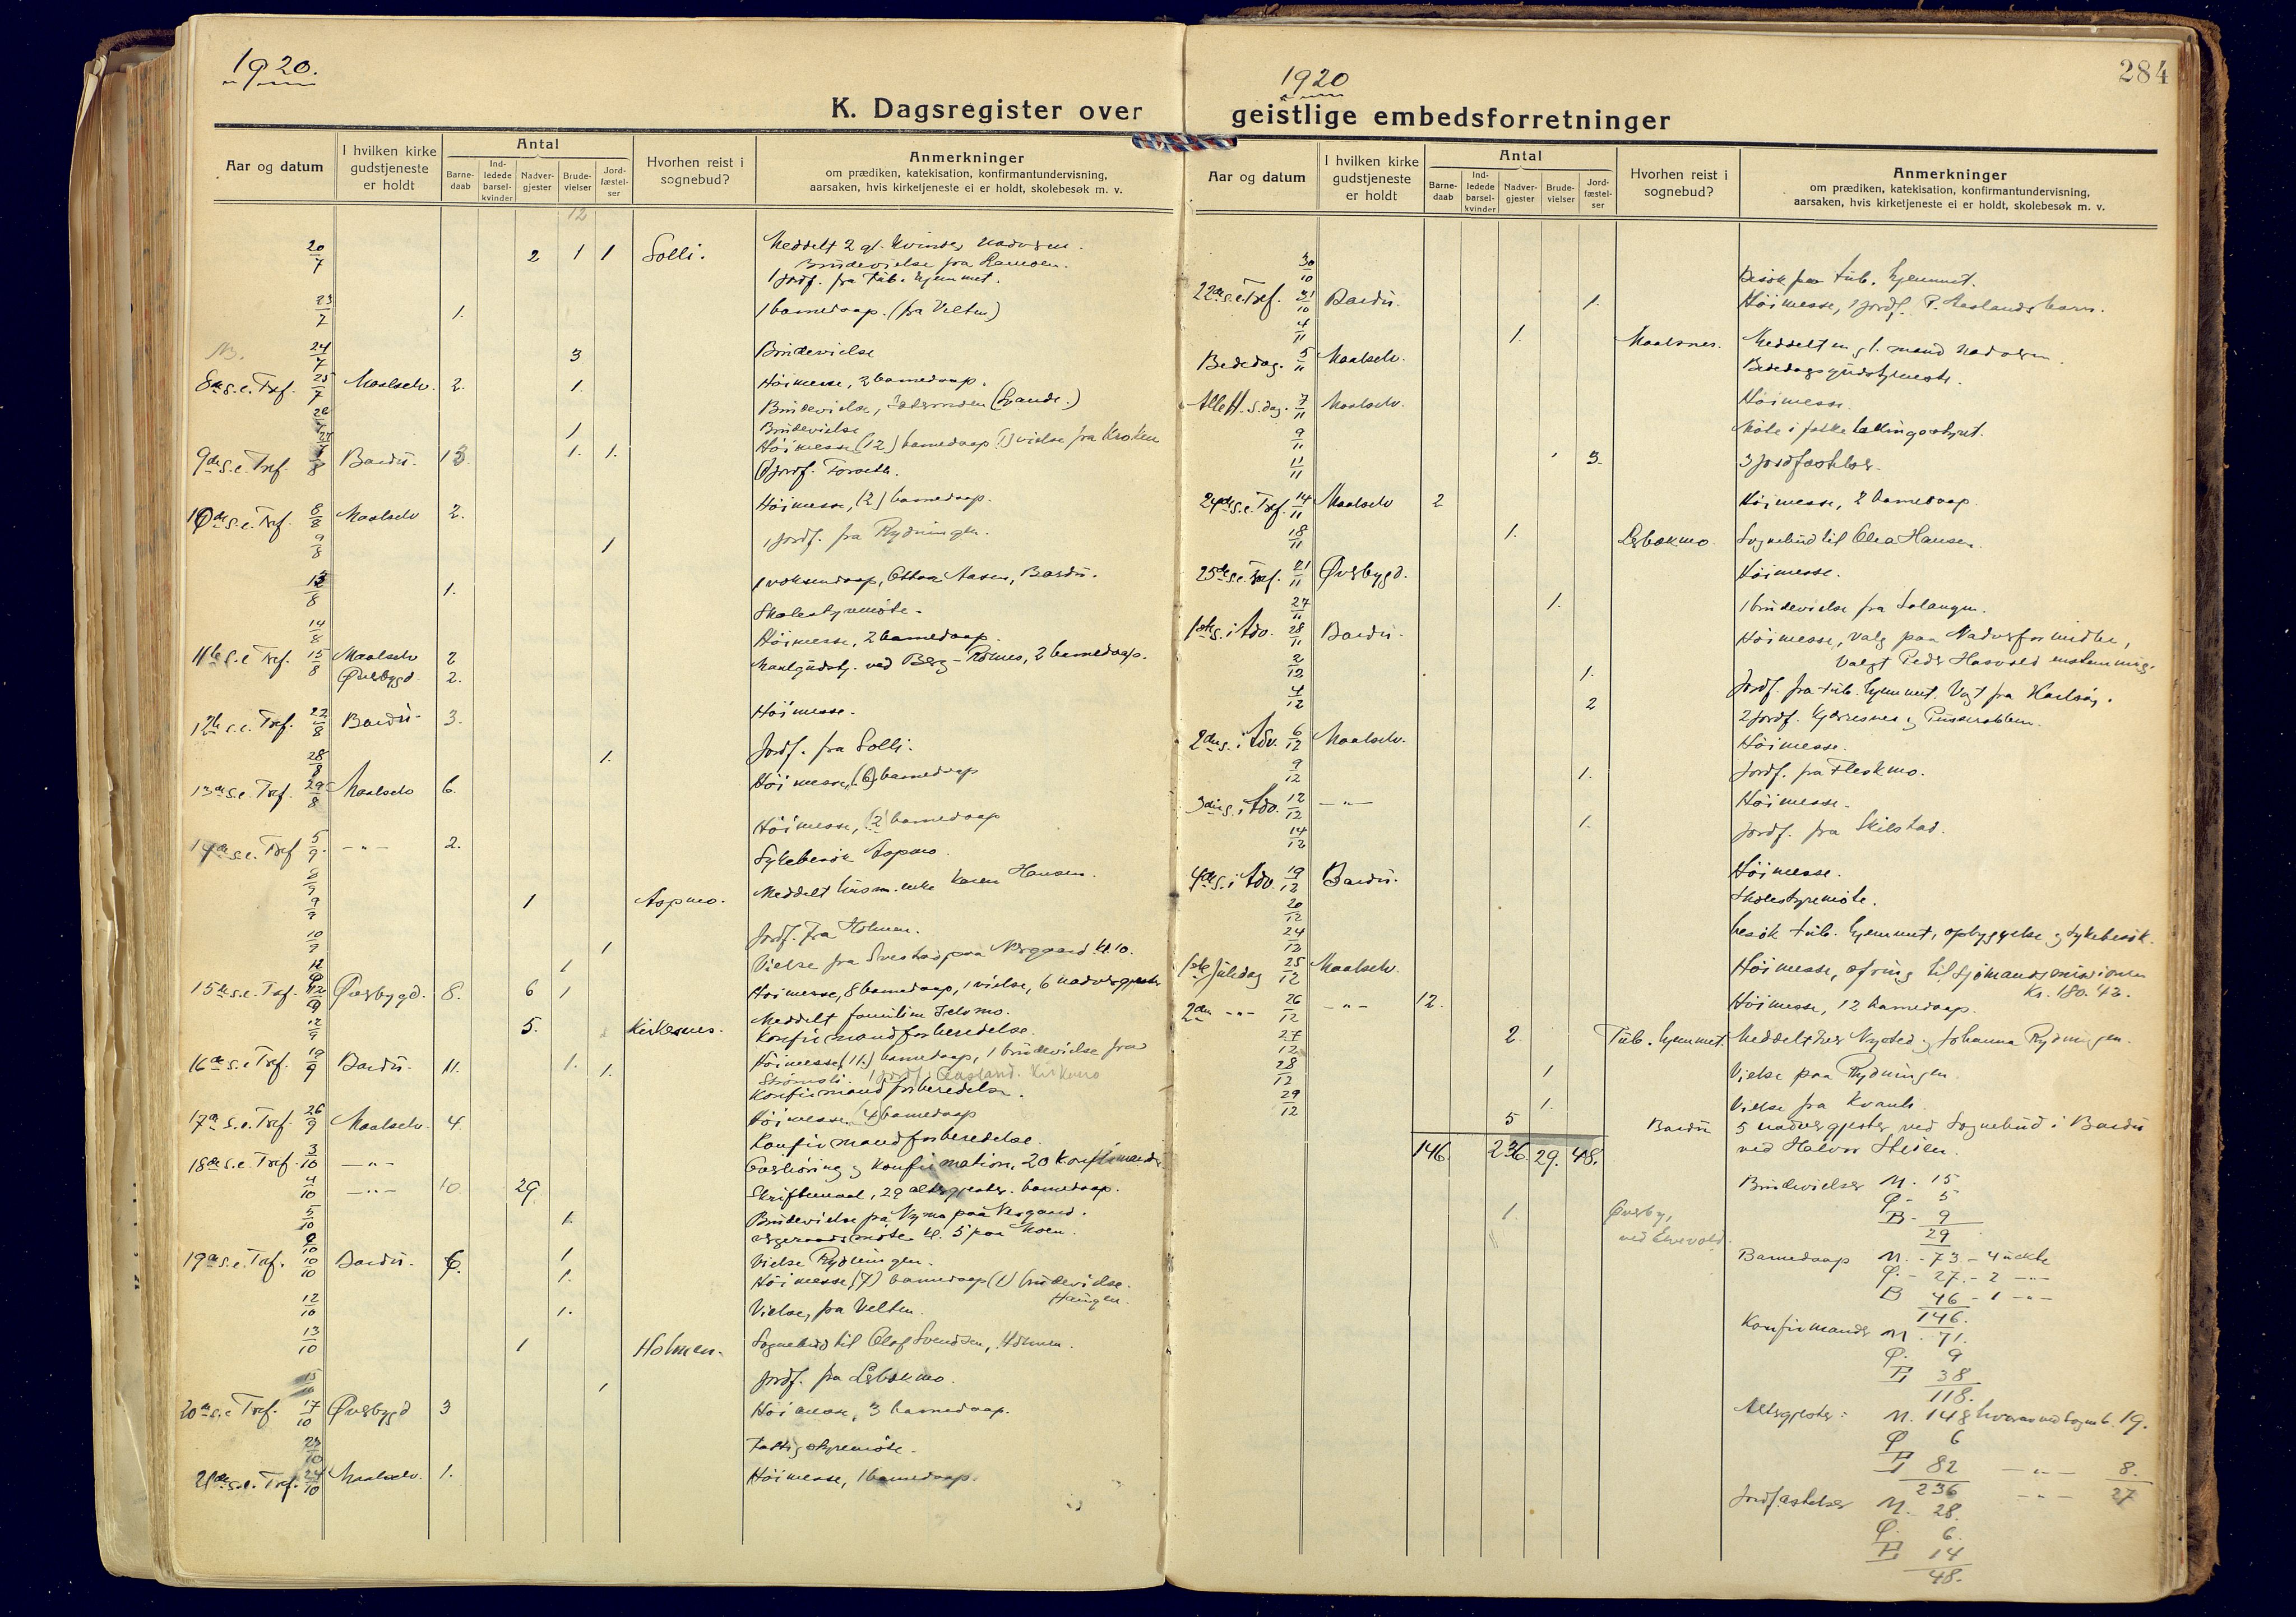 1920.
K. Dagsregister over
Aar og datum
I hvilken kirke gudstjeneste er holdt
Antal
Barne-daab
Ind-ledede barsel-kvinder
Nadver-gjester
Brude-vielser
Jord-fæstel-ser
Hvorhen reist i sognebud?
Anmerkninger
om prædiken, katekisation, konfirmantundervisning,
aarsaken, hvis kirketjeneste ei er holdt, skolebesøk m. v.
12
20/7 2 1 1 Solli. Meddelt 2 gl. kvinder nadveren.
Brudevielse fra
1 jordf. fra tub. hjemmet.
23/7 1. 1 barnedaap. (fra Velten)
24/7 3 Brudevielse
8de s.e. Tref. 25/7 Maalselv. 2. 1. Höimesse, 2 barnedaap.
Brudevielse,
1 Brudevielse
9de s.e. Tref. 1/8 Bardu. 13. 1. 1. Höimesse (12) barnedaap (1) vielse fra Kroken
(1) jordf.
10de s.e. Tref. 8/8 Maalselv 2. Höimesse, (2) barnedaap.
9/8 1 1 jordf. fra Rydningen.
12/8 1. 1 voksendaap, Aasen, Bardu.
14/8 Skolestyremöte.
11te s.e. Tref. 15/8 Maalselv 2 Höimesse, 2 barnedaap.
Øverbygd. 2. ved Berg, 2 barnedaap.
12te s.e. Tref. 22/8 Bardu. 3. Höimesse.
28/8 1. Jordf. fra Solli.
13de s.e. Tref. 29/8 Maalselv 6. Höimesse, (6) barnedaap
14de s.e. Tref 5/9. -"- 2. Höimesse, (2) barnedaap
8/9 Sykebesök Aspmo.
9/9 1 Aspmo. Meddelt husm. enke Karen Hansen.
10/9 1 Jordf. fra Holmen.
1 Vielse fra paa Nergaard kl. 10.
15de s.e. Tref. 12/9 Øverbygd. 8. 6 1 Höimesse, 8 barnedaap, 1 vielse, 6 nadvergjester
12/9 5. Kirkesnes. Meddelt familien
Konfirmandforberedelse.
16de s.e. Tref. 19/9 Bardu. 11. 1. 1. Höimesse (11) barnedaap, 1 brudevielse fra
Strömsli.
Konfirmandforberedelse.
17de s.e. Tref. 26/9 Maalselv. 4. Höimesse (4) barnedaap
Konfirmandforberedelse.
18de s.e. Tref. 3/10 -"- Overhöring og konfirmation, 20 konfirmander
4/10 -"- 10. 29 Skriftemaal, 29 altergjester. barnedaap.
5/10 1. Brudevielse fra Nymo paa Nergaard.
Vergeraadsmöte kl. 5 paa Moen.
1 Vielse Rydningen.
19de s.e. Tref. 10/10 Bardu. 1. Höimesse, (7) barnedaap (1) brudevielse.
12/10 1. Vielse, fra Velten.
13/10 1 Holmen. Sognebud til Olaf Svendsen, Holmen.
1 Jordf. fra Lebækmo.
20de s.e. Tref. 17/10 Øverbygd 3 Höimesse, 3 barnedaap.
23/10 Fattigstyremöte.
21de s.e. Tref. 24/10 Maalselv. 1. Höimesse, 1 barnedaap.
1920
284
geistlige embedsforretninger
Aar og datum
I hvilken kirke gudstjeneste er holdt
Antal
Barne-daab
Ind-ledede barsel-kvinder
Nadver-gjester
Brude-vielser
Jord-fæstel-ser
Hvorhen reist i sognebud?
Anmerkninger
om prædiken, katekisation, konfirmantundervisning,
aarsaken, hvis kirketjeneste ei er holdt, skolebesøk m. v.
30/10 Besök paa tub. hjemmet.
22de s.e. Tref. 31/10 Bardu. 1. Höimesse, 1 jordf. P. barn.
4/11 1. Maalsnes. Meddelt en gl. mand nadveren.
Bededag. 5/11 Maalselv. Bededagsgudstjeneste.
Alle H. S. dag. 7/11 Maalselv. Höimesse.
9/11 Möte i folketællingsstyret.
11/11 3. 3 jordfæstelser.
24de s.e. Tref. 14/11 Maalselv 2 Höimesse, 2 barnedaap.
18/11 1. Lebækmo Sognebud til Olea Hansen.
25de s.e. Tref. 21/11 Øverbygd. Höimesse.
27/11 1. 1 brudevielse fra Salangen.
1ste s. i Adv. 28/11 Bardu. Höimesse, valg paa Nadverformidler,
valgt Peder enstemmig.
2/12 1. Jordf. fra tub. hjemmet.
4/12 2 2 jordf.
2den s. i Adv. 6/12 Maalselv. Höimesse.
9/12 1. Jordf. fra Fleskmo.
3die s. i Adv. 12/12 -"- Höimesse.
14/12 1. Jordf. fra Skilstad.
4de s. i Adv. 19/12 Bardu. Höimesse.
20/12 Skolestyremöte.
24/12 besök tub. hjemmet, opbyggelse og sykebesök.
1ste juledag 25/12 Maalselv. Höimesse, ofring til Sjömandsmissionen
Kr. 180.43.
2den -"- 26/12 -"- 12. Höimesse, 12 barnedaap.
27/12 2 Tub. hjemmet. Meddelt Nysted og Johanna Rydningen.
28/12 1 Vielse paa Rydningen.
29/12 1. Vielse fra
5 Bardu 5 nadvergjester ved Sognebud i Bardu
ved Halvor
146. 236. 29. 48.
1. Øverby,
Brudevielser M. 15
Ø. 5
B. 9
29
Barnedaap M. - 73 - 4 uekte
Ø. - 27. - 2 -"-
B 46 - 1 -"-
146.
Konfirmander M. 71.
Ø. 9
B 38
118.
Altergjester: M. 148 hvorav ved Sogneb. 19.
Ø 6
B 82 -"- 8.
236 -"- 27
Jordfæstelser M. 28.
Ø. 6.
B 14
48.